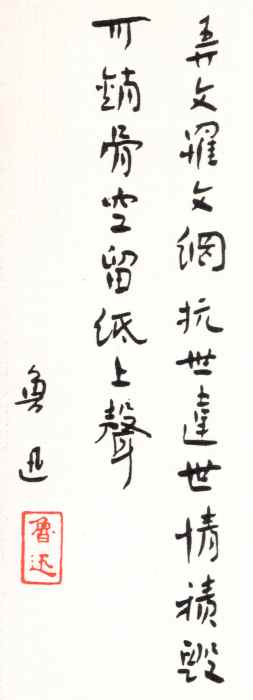 弄文罹文網抗世違世情積毀
可銷骨空留紙上聲
魯迅
魯迅